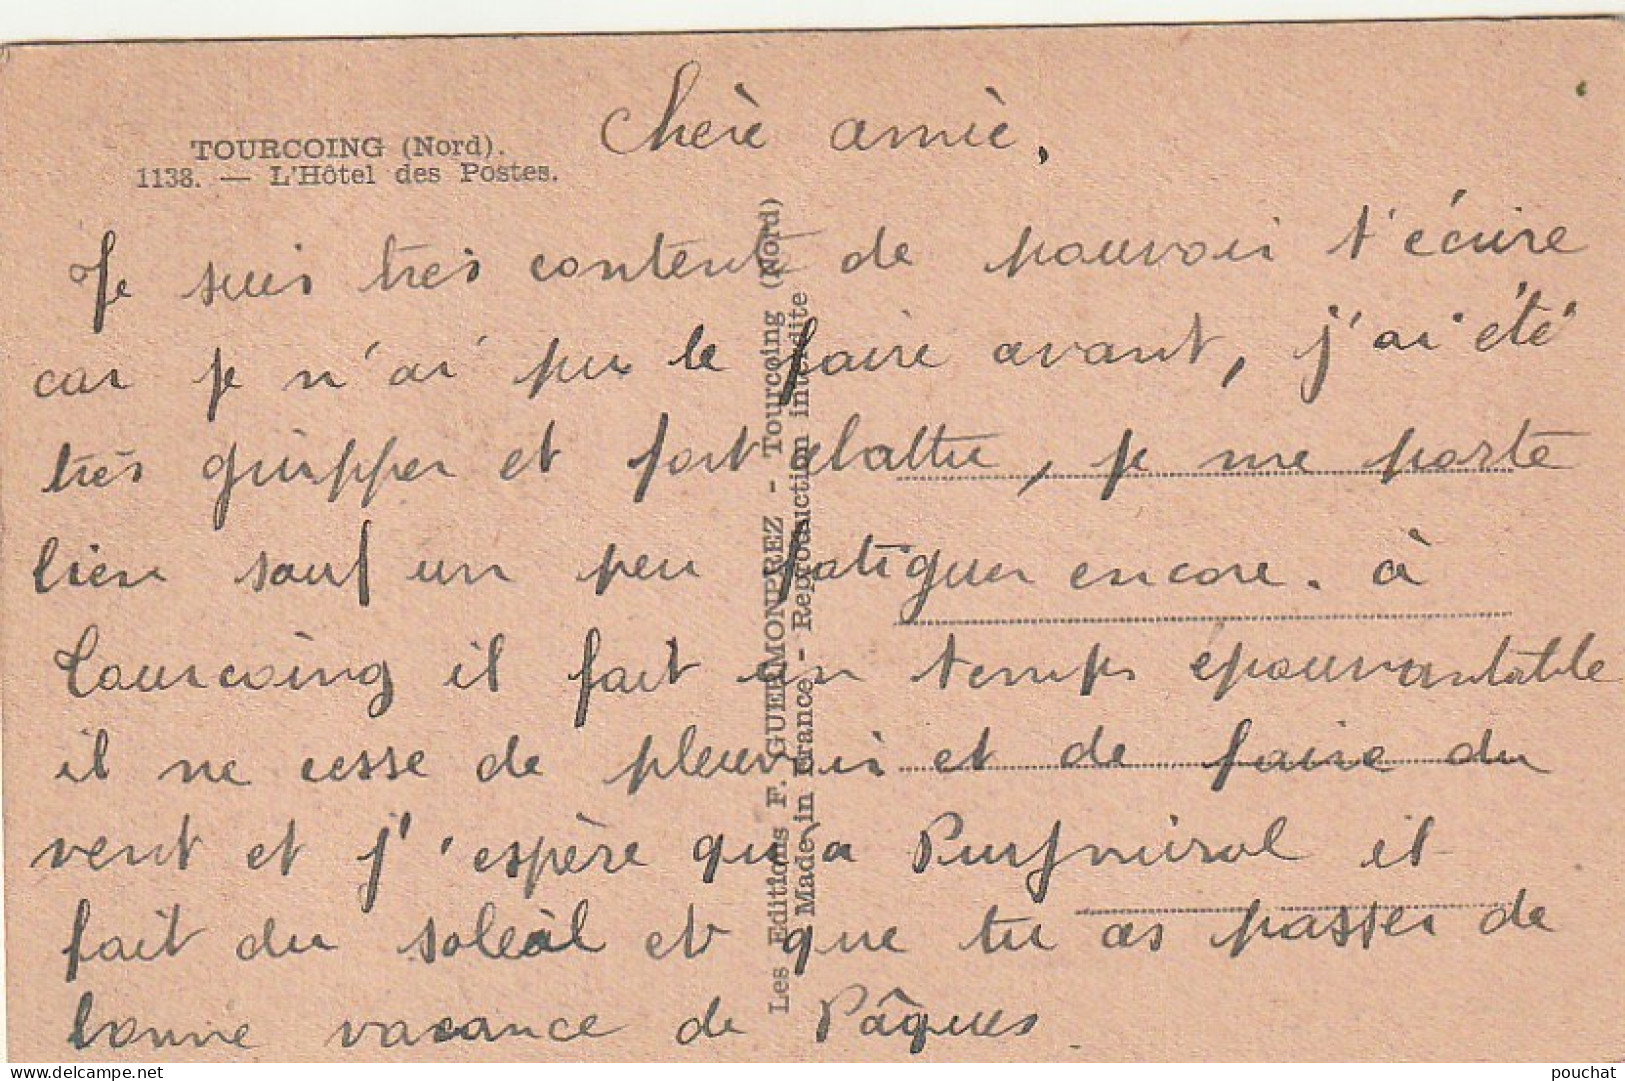 TOURCOING (Nord).
1138. — L'Hôtel des Postes.
Chère amie,
Je suis très contente de pouvoir t'écrire
car je n'ai pu le faire avant, j'ai été
très gripper et fort abattre, je me porte
bien sauf un peu fatiguer encore. à
Tourcoing il fait un temps épouvantable
il ne cesse de pleuvoir et de faire du
vent et j'espère qu'a il
fait du soleil et que tu as passer de
bonne vacance de Pâques
Les Editions F. GUERMONPREZ - Tourcoing (Nord)
Made in France - Reproduction interdite
delcampe.net
pouchat